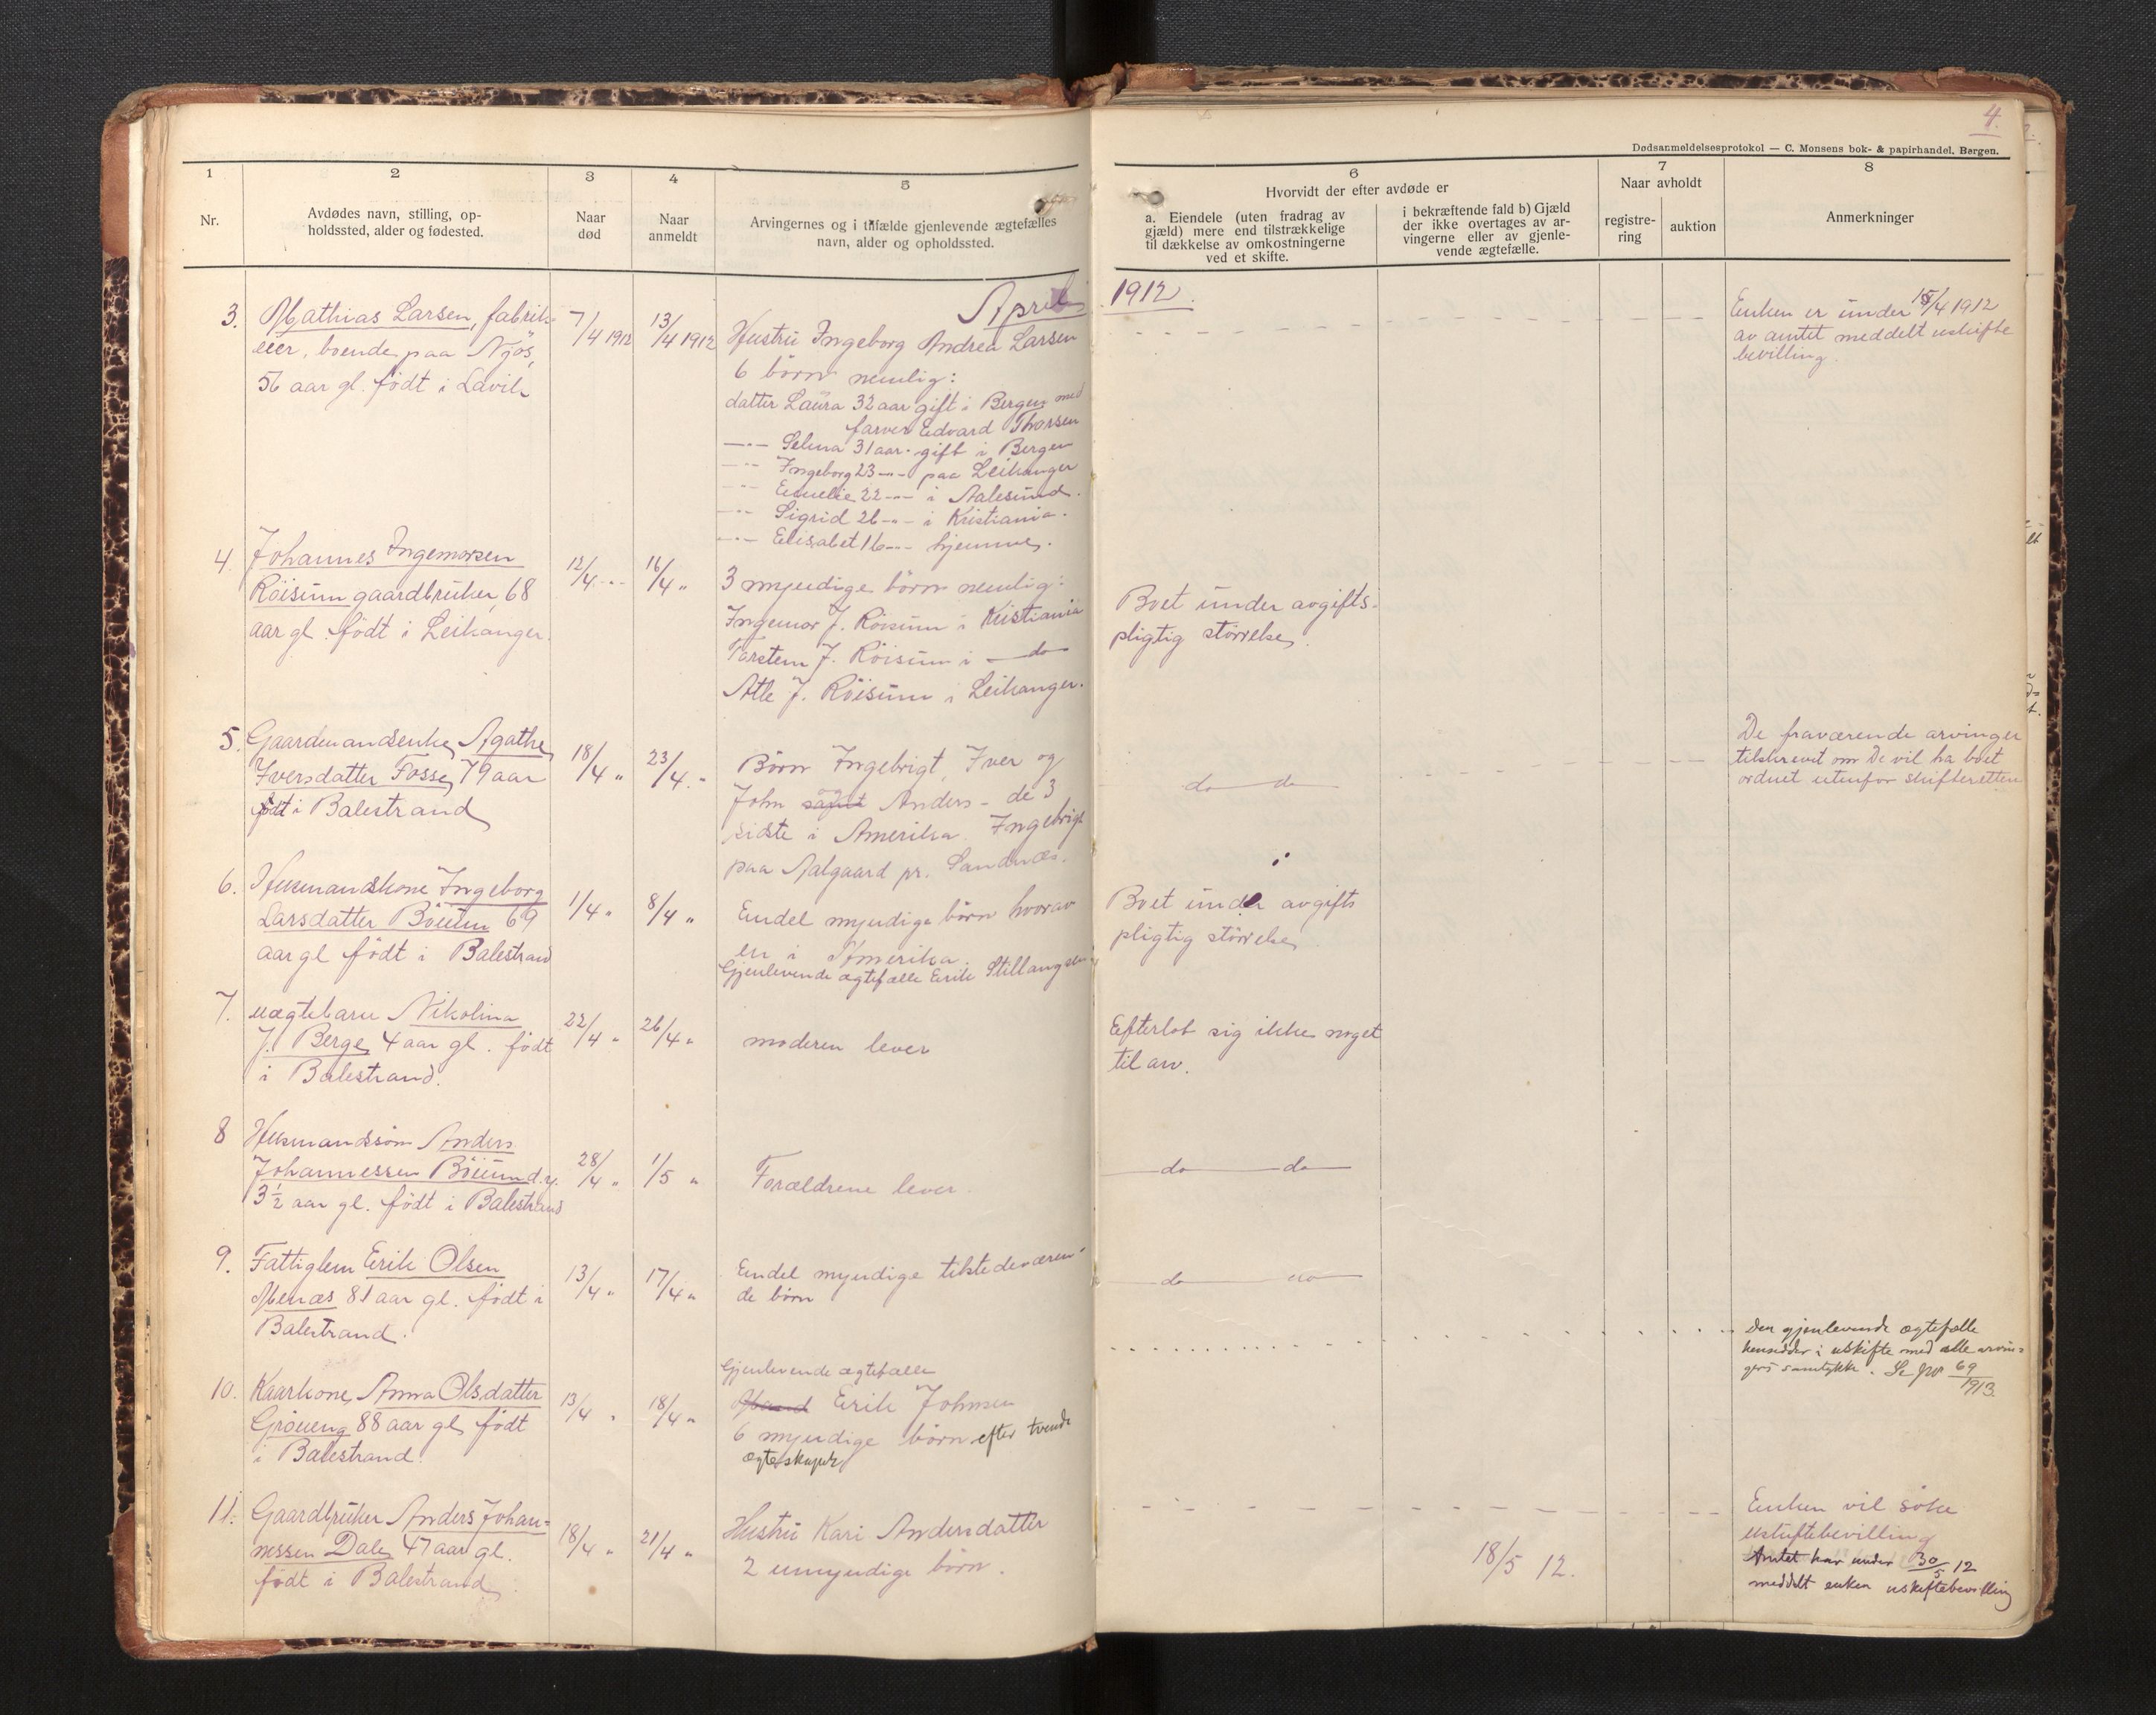 4.
Dødsanmeldelsesprotokol — C. Monsens bok- & papirhandel. Bergen.
1
2
3
4
5
6
7
8
Nr.
Avdødes navn, stilling, op-
holdssted, alder og fødested.
Naar
død
Naar
anmeldt
Arvingernes og i tilfælde gjenlevende ægtefælles
navn, alder og opholdssted.
Hvorvidt der efter avdøde er
a. Eiendele (uten fradrag av
gjæld) mere end tilstrækkelige
til dækkelse av omkostningerne
ved et skifte.
i bekræftende fald b) Gjæld
der ikke overtages av ar-
vingerne eller av gjenle-
vende ægtefælle.
Naar avholdt
registre-
ring
auktion
Anmerkninger
April 1912.
3. Mathias Larsen, fabrik-
eier, boende paa Njøs,
56 aar gl. født i Lavik
7/4 1912
13/4 1912
Hustru Ingeborg Andrea Larsen
6 børn nemlig:
datter Laura 32 aar gift i Bergen med
farver Edvard Thorsen
—"— Selma 31 aar gift i Bergen
—"— Ingeborg 23 —"— paa Leikanger
—"— Emelie 22 —"— i Aalesund.
—"— Sigrid 26 —"— i Kristiania.
—"— Elisabet 16 —"— hjemme.
Enken er under 15/4 1912
av amtet meddelt uskifte
bevilling.
4. Johannes Ingemorsen
Røisum gaardbruker, 68
aar gl. født i Leikanger.
12/4 —"—
16/4 "
3 myndige børn nemlig:
Ingemor J. Røisum i Kristiania
Torstein J. Røisum i — do —
Atle J. Røisum i Leikanger.
Boet under avgifts-
pligtig størrelse.
5. Gaardmandsenke Agathe
Iversdatter Fosse, 79 aar
født i Balestrand
18/4 "
23/4 "
Børn Ingebrigt, Iver og
John og Anders - de 3
sidste i Amerika. Ingebrigt
paa Aalgaard pr. Sandnæs.
do — do —
De fraværende arvinger
tilskrevet om De vil ha boet
ordnet utenfor skifteretten
6. Husmandskone Ingeborg
Larsdatter Bøium 69
aar gl født i Balestrand
1/4 "
8/4 "
Endel myndige børn hvorav
en i Amerika.
Gjenlevende ægtefælle Erik
Boet under avgifts
pligtig størrelse
7. uægtebarn Nikolina
J. Berge 4 aar gl. født
i Balestrand.
22/4 "
26/4 "
moderen lever
Efterlot sig ikke noget
til arv.
8 Husmandssøn Anders
Johannessen Bøium d.y.
3½ aar gl. født i Balestrand
28/4 "
1/5 "
Forældrene lever.
— do — do —
9. Fattiglem Erik Olsen
Menæs 81 aar gl. født i
Balestrand.
13/4 "
17/4 "
Endel myndige tilstedeværen-
de børn
— do — do —
10. Kaarkone Anna Olsdatter
Grøneng 88 aar gl. født
i Balestrand.
13/4 "
18/4 "
Gjenlevende ægtefælle
Mand Erik Johnsen
6 myndige børn efter tvende
ægteskaper
Den gjenlevende ægtefælle
hensidder i uskifte med alle arvin-
gers samtykke. Se jnr 69/1913
11. Gaardbruker Anders Johan-
nessen Dale 47 aar gl.
født i Balestrand
18/4 "
21/4 "
Hustru Kari Andersdatter
2 umyndige børn.
18/5 12.
Enken vil søke
uskiftebevilling
Amtet har under 30/5 12
meddelt enken uskiftebevilling